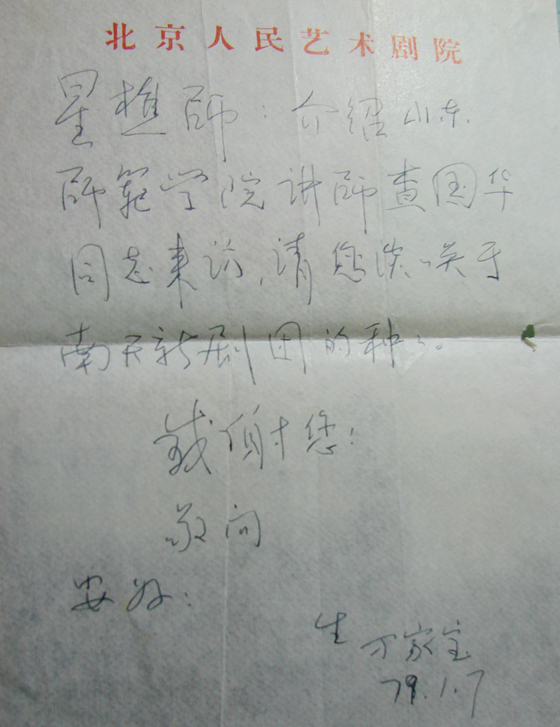 北京人民艺术剧院
星樵師：介绍山东
師範学院讲師查国华
同志来访，请您谈、关于
南开新剧团的种々。
谢您！
敬问
安好！
生 万家宝
79.1.7